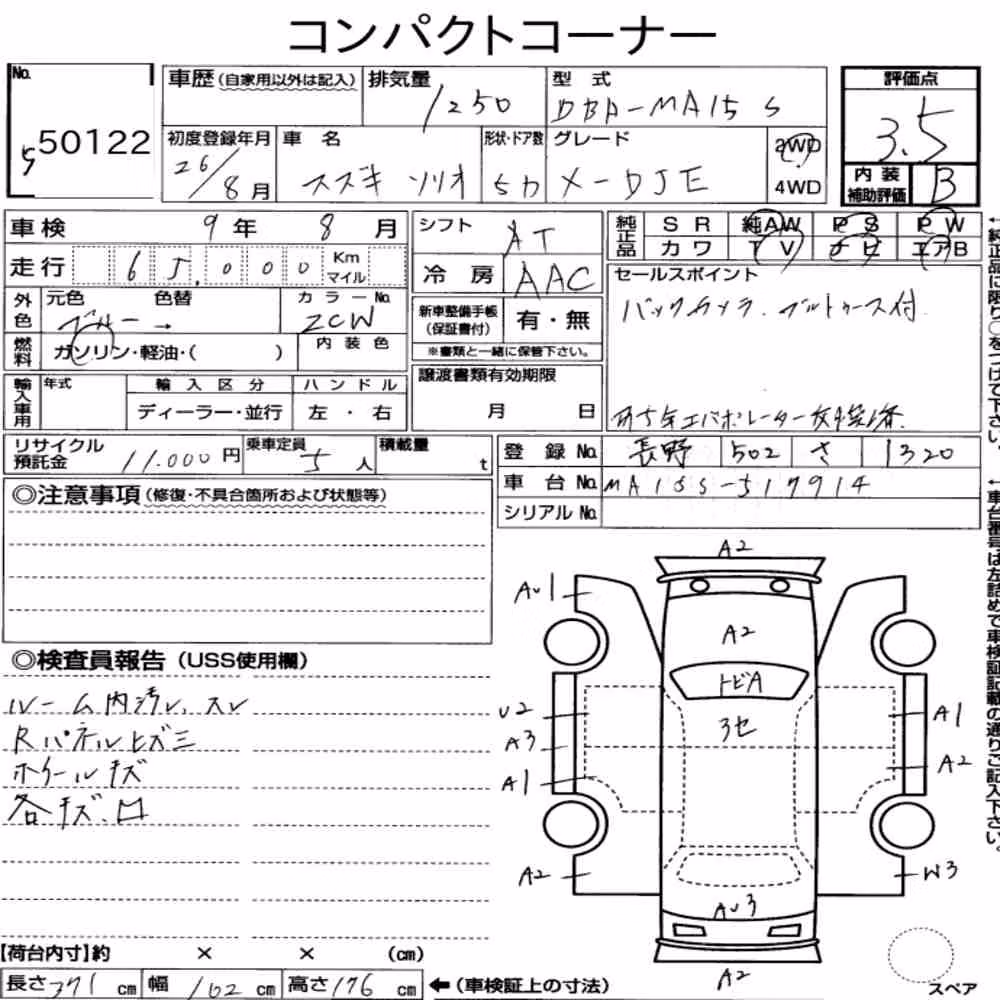 コンパクトコーナー
No.
50122
車歴 (自家用以外は記入)
排気量
1250
型 式
DBA-MA15 S
評価点
3.5
初度登録年月
26/8月
車 名
スズキ ソリオ
形状・ドア数
5D
グレード
X-DJE
2WD
4WD
内 装
補助評価
B
車検
9 年 8 月
走行
65,000
Km
マイル
外色
元色 色替
ブルー →
カラーNo.
ZCW
燃料
ガソリン・軽油・( )
内 装 色
輸入車用
年式
輸 入 区 分
ディーラー・並行
ハ ン ド ル
左 ・ 右
シフト
AT
冷 房
AAC
新車整備手帳
(保証書付)
有・無
※書類と一緒に保管下さい。
譲渡書類有効期限
月 日
純正品
S R 純AW P S P W
カ ワ T V ナ ビ エアB
セールスポイント
バックカメラ. ブルトゥース付
←純正品に限り○をつけて下さい。
リサイクル
預託金
11.000 円
乗車定員
5 人
積載量
t
登 録 No.
長野 502 さ 1320
車 台 No.
MA15S-517914
シリアル No.
←車台番号は左詰めで車検証記載の通りご記入下さい。
◎注意事項 (修復・不具合箇所および状態等)
◎検査員報告 (USS使用欄)
ルーム内汚レ、スレ
Rパネルヒズミ
ホイールキズ
各キズ、凹
A2
AU1
A2
トビA
3セ
U2
A3
A1
A1
A2
A2
W3
AU3
A2
【荷台内寸】約 × × (cm)
長さ 371 cm 幅 162 cm 高さ 176 cm ←(車検証上の寸法)
スペア